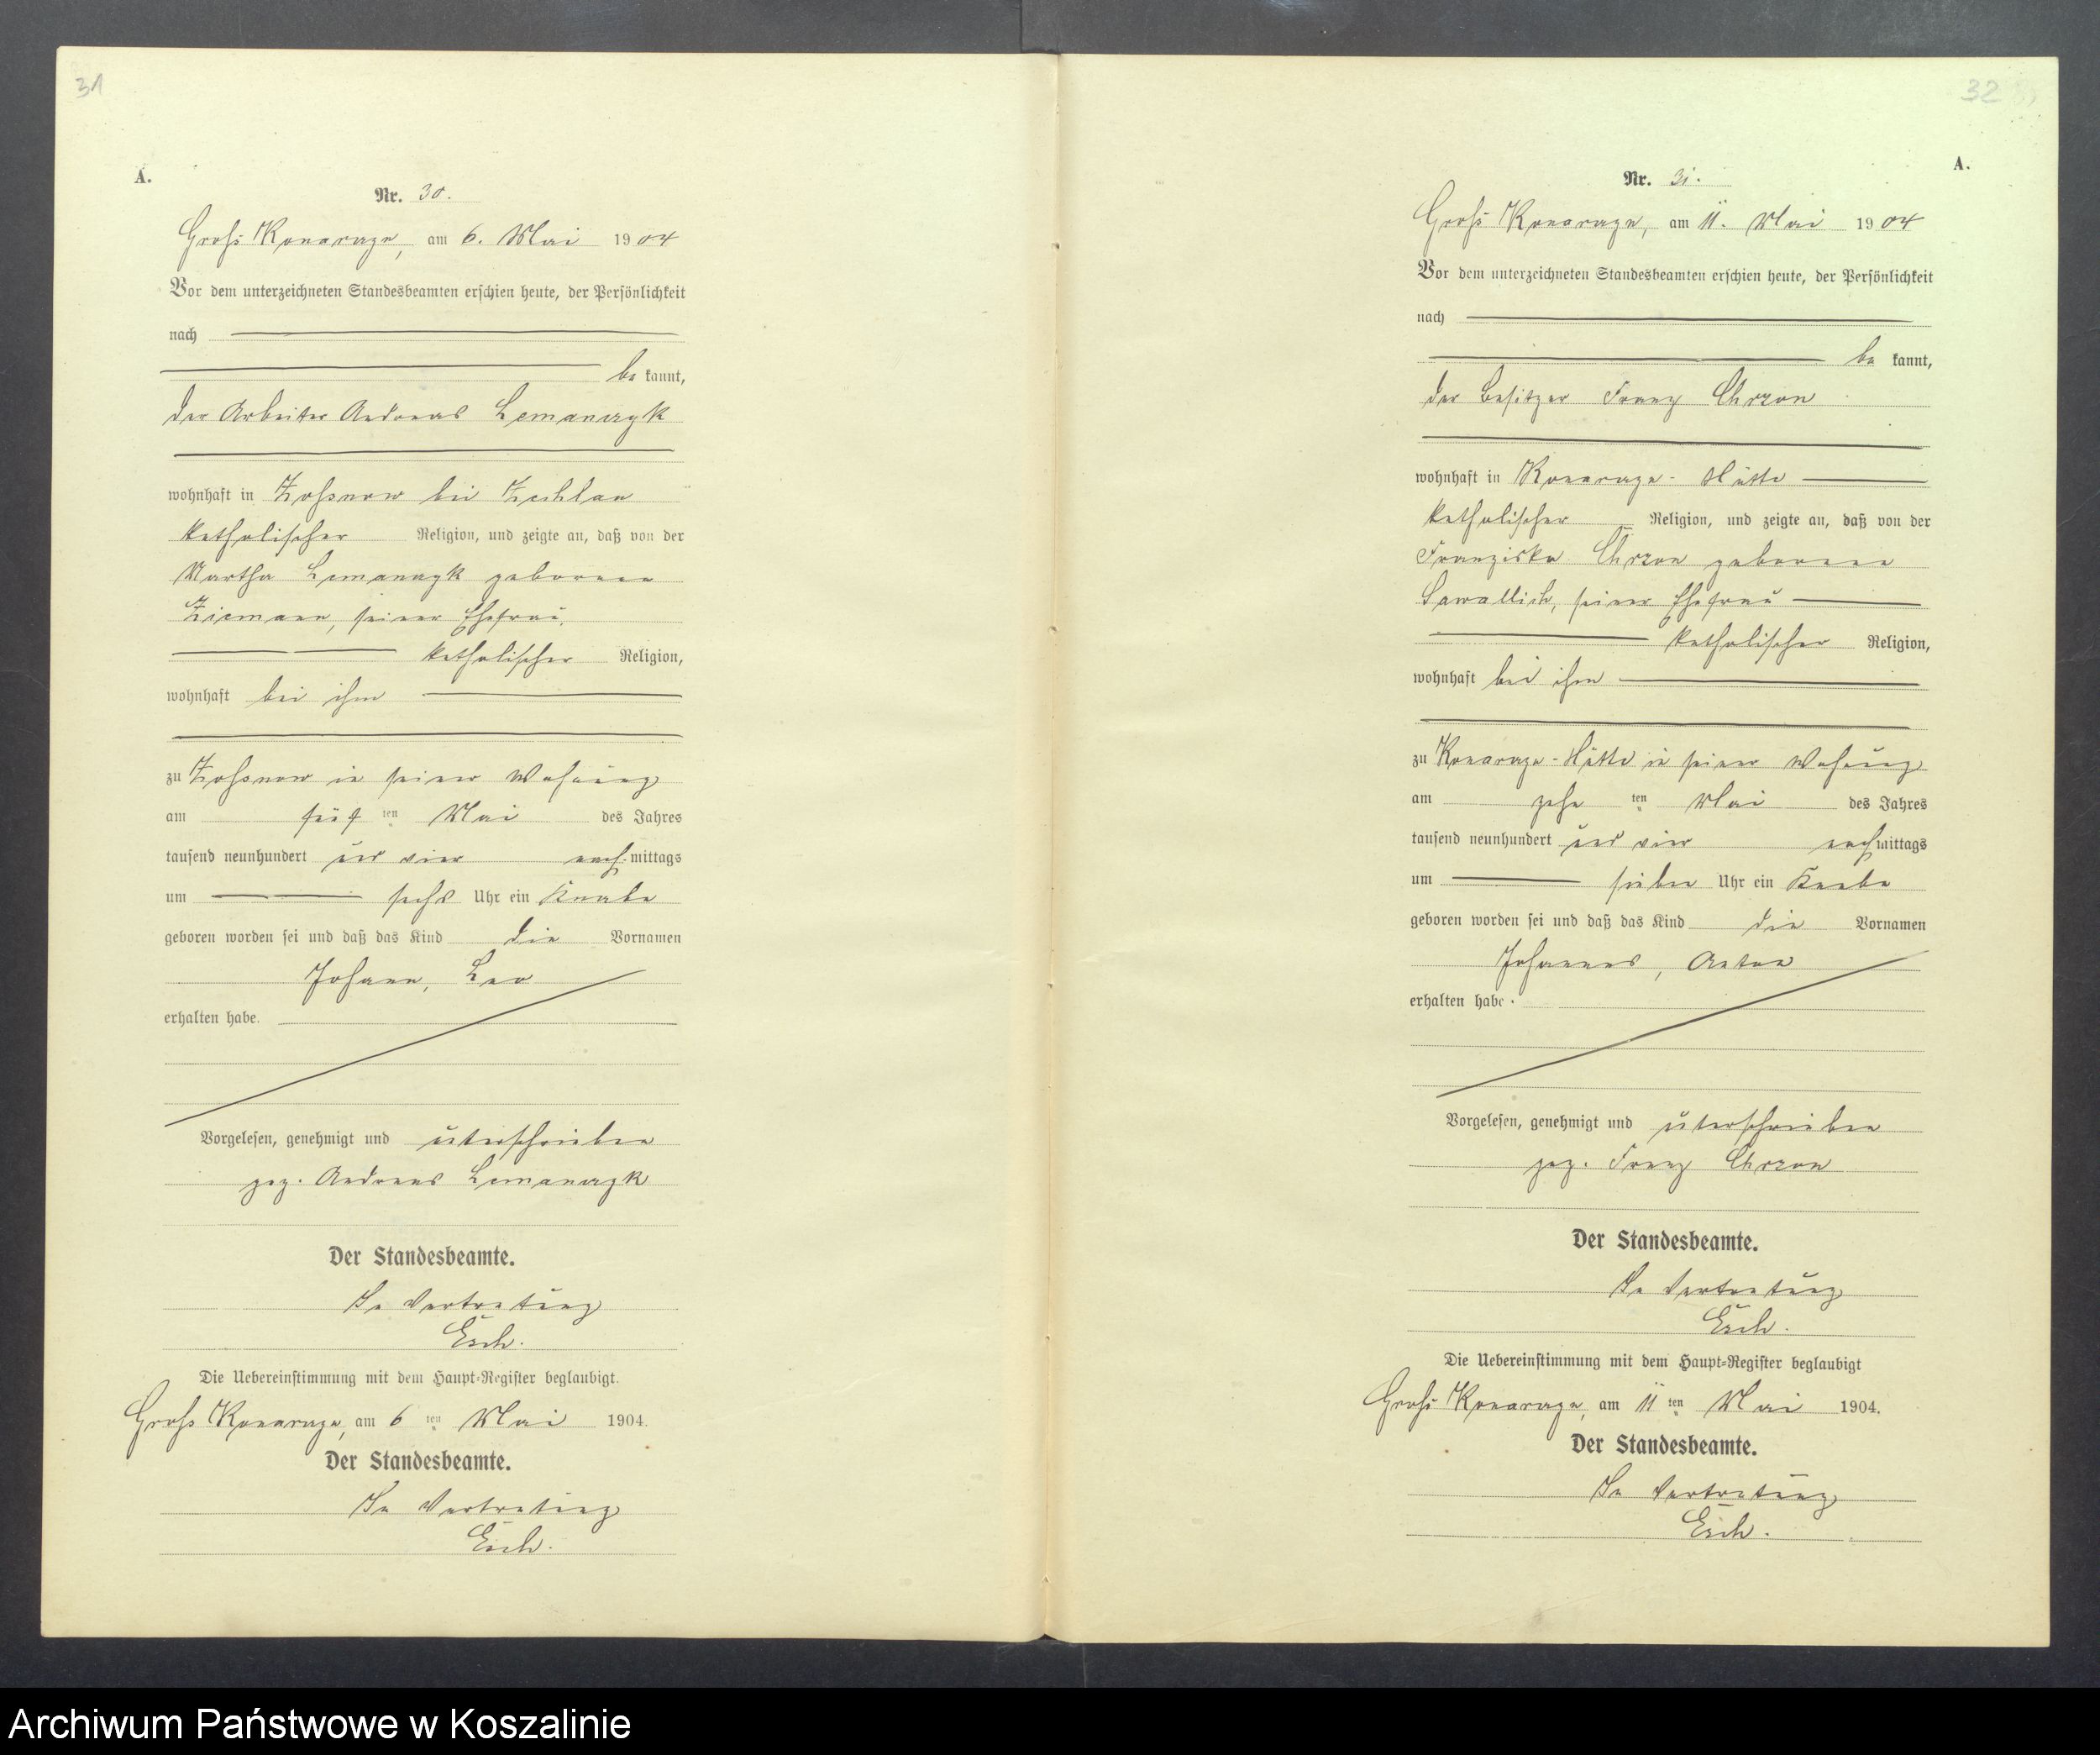 31
A.
Nr. 30.
Groß Konarczyn, am 6. Mai 1904
Vor dem unterzeichneten Standesbeamten erschien heute, der Persönlichkeit
nach
be kannt,
der Arbeiter Andreas Lemanczyk
wohnhaft in Zoffnow bei Zechlau
katholischer Religion, und zeigte an, daß von der
Martha Lemanczyk geborenen
Ziemann, seiner Ehefrau,
katholischer Religion,
wohnhaft bei ihm
zu Zoffnow in seiner Wohnung
am fünf ten Mai des Jahres
tausend neunhundert und vier nach mittags
um sechs Uhr ein Knabe
geboren worden sei und daß das Kind die Vornamen
Johann, Leo
erhalten habe.
Vorgelesen, genehmigt und unterschrieben
gez. Andreas Lemanczyk
Der Standesbeamte.
In Vertretung
Esch.
Die Uebereinstimmung mit dem Haupt-Register beglaubigt.
Groß Konarczyn, am 6 ten Mai 1904.
Der Standesbeamte.
In Vertretung
Esch.
32
A.
Nr. 31.
Groß Konarczyn, am 11. Mai 1904
Vor dem unterzeichneten Standesbeamten erschien heute, der Persönlichkeit
nach
be kannt,
der Besitzer Franz Chrzon
wohnhaft in Konarczyn-Hütte
katholischer Religion, und zeigte an, daß von der
Franziska Chrzon geborenen
Sawallich, seiner Ehefrau
katholischer Religion,
wohnhaft bei ihm
zu Konarczyn-Hütte in seiner Wohnung
am zehn ten Mai des Jahres
tausend neunhundert und vier nach mittags
um sieben Uhr ein Knabe
geboren worden sei und daß das Kind die Vornamen
Johannes, Anton
erhalten habe.
Vorgelesen, genehmigt und unterschrieben
gez. Franz Chrzon
Der Standesbeamte.
In Vertretung
Esch.
Die Uebereinstimmung mit dem Haupt-Register beglaubigt
Groß Konarczyn, am 11 ten Mai 1904.
Der Standesbeamte.
In Vertretung
Esch.
Archiwum Państwowe w Koszalinie